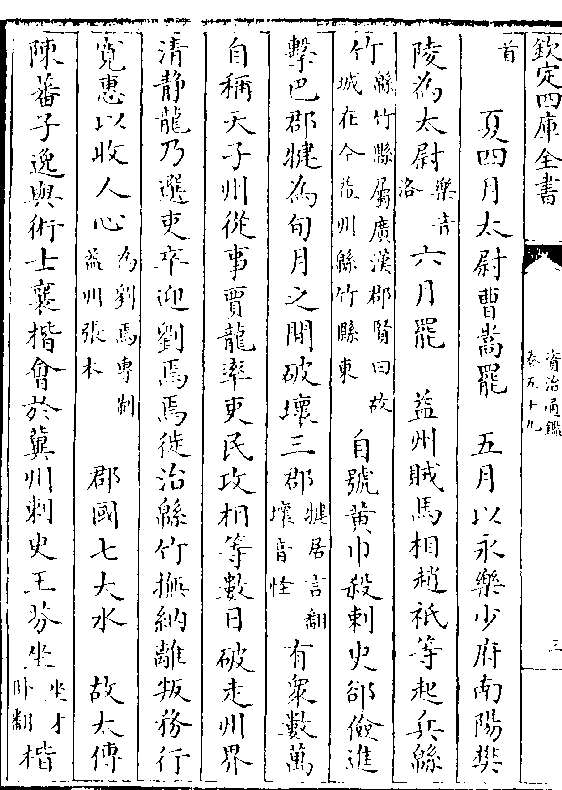 欽定四庫全書
資治通鑑
卷五十九
三
首　夏四月太尉曹嵩罷　五月以永樂少府南陽樊
陵為太尉樂音洛六月罷　益州賊馬相趙祗等起兵緜
竹緜竹縣屬廣漢郡賢曰故城在今益州緜竹縣東自號黃巾殺刺史郤儉進
擊巴郡犍為旬月之間破壞三郡犍居言翻壞音怪有衆數萬
自稱天子州從事賈龍率吏民攻相等數日破走州界
清静龍乃選吏卒迎劉焉焉徙治緜竹撫納離叛務行
寛惠以收人心為劉焉專制益州張本　郡國七大水　故太傅
陳蕃子逸與術士襄楷會於冀州刺史王芬坐坐才卧翻楷